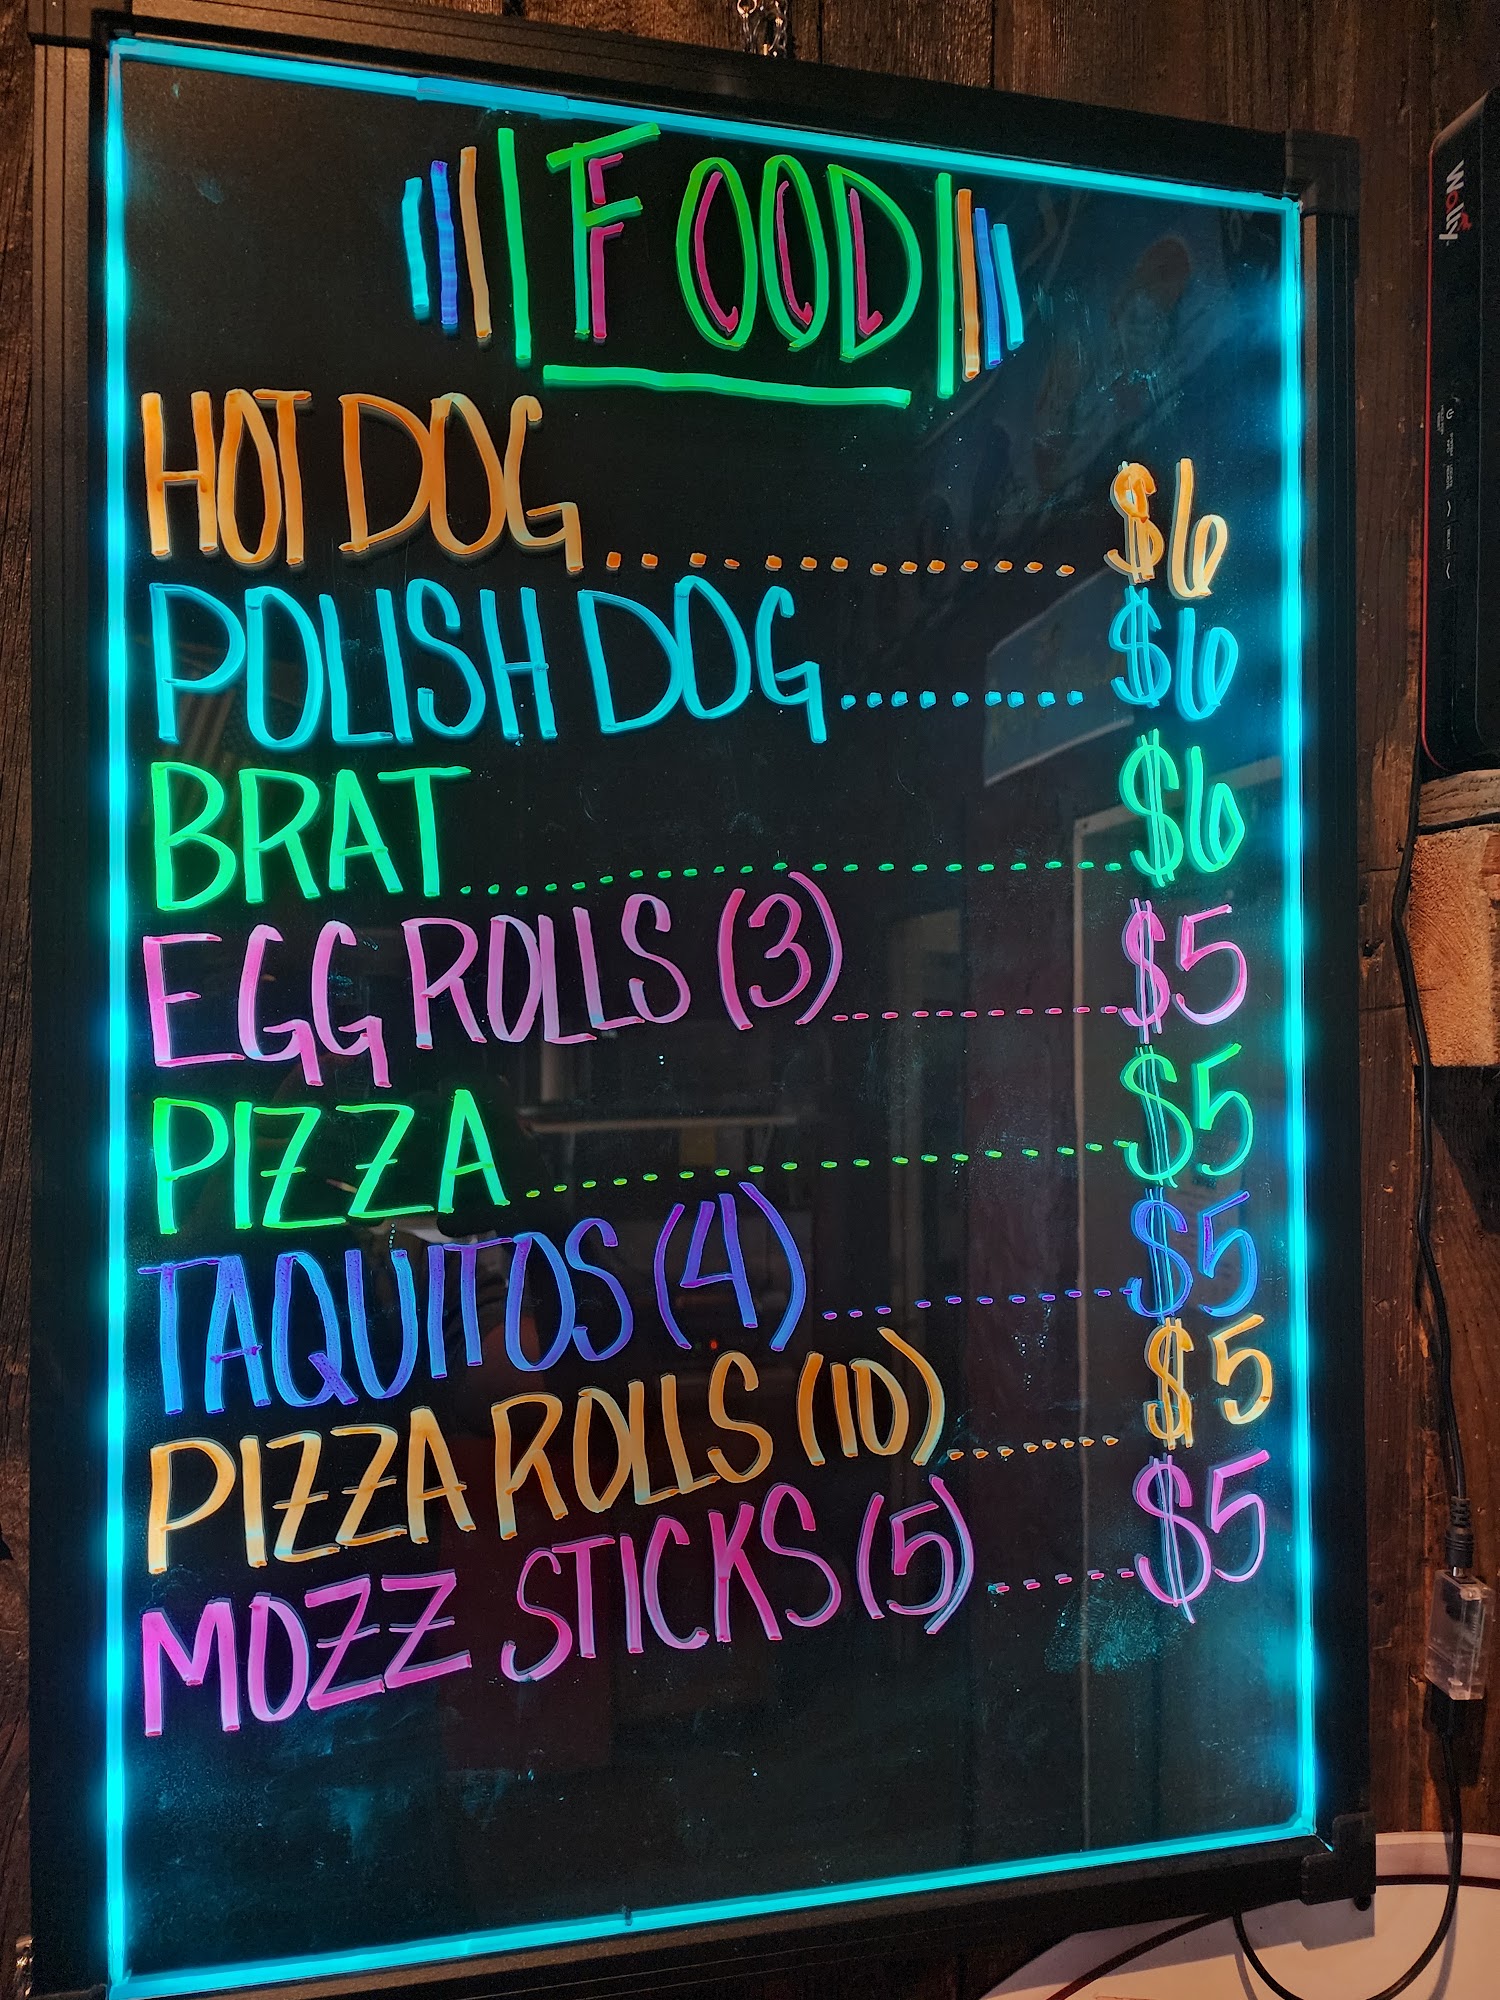 FOOD
HOT DOG............ $6
POLISH DOG......... $6
BRAT........................$6
EGG ROLLS (3)-----------$5
PIZZA...................$5
TAQUITOS (4)-----------$5
PIZZA ROLLS (10)........$5
MOZZ STICKS (5)-----$5
Wolly